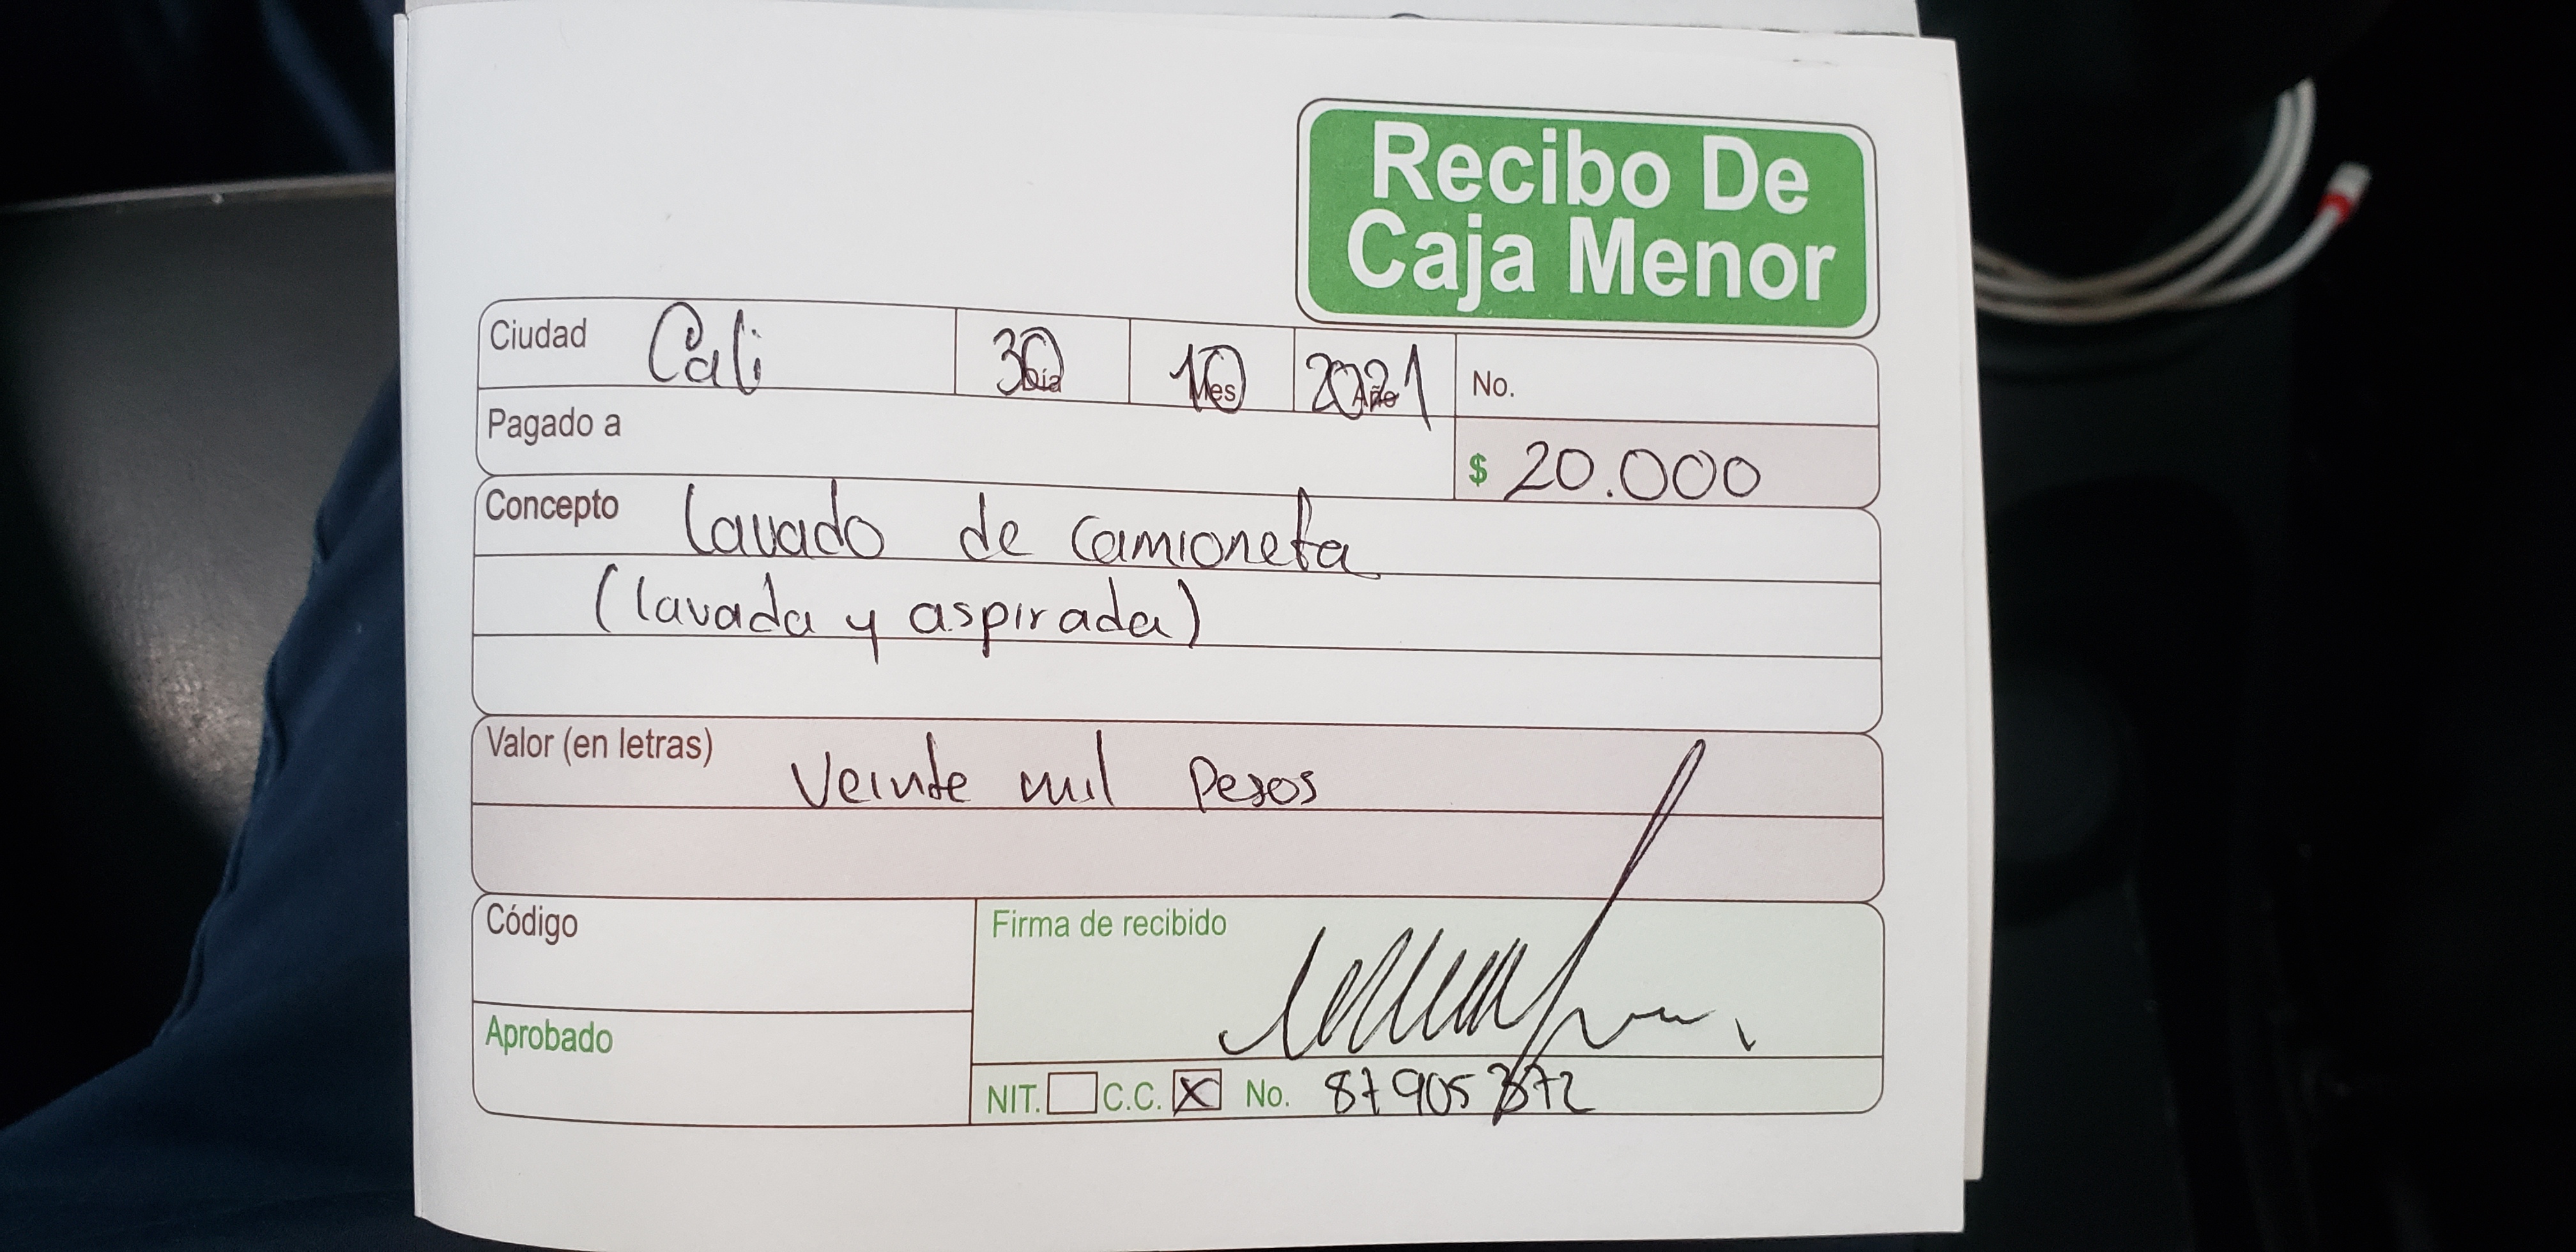 Recibo De
Caja Menor
Ciudad Cali 30 Día 10 Mes 2021 Año No.
Pagado a
$ 20.000
Concepto Lavado de camioneta
(lavada y aspirada)
Valor (en letras) Veinte mil Pesos
Código
Firma de recibido
Aprobado
NIT. C.C. X No.